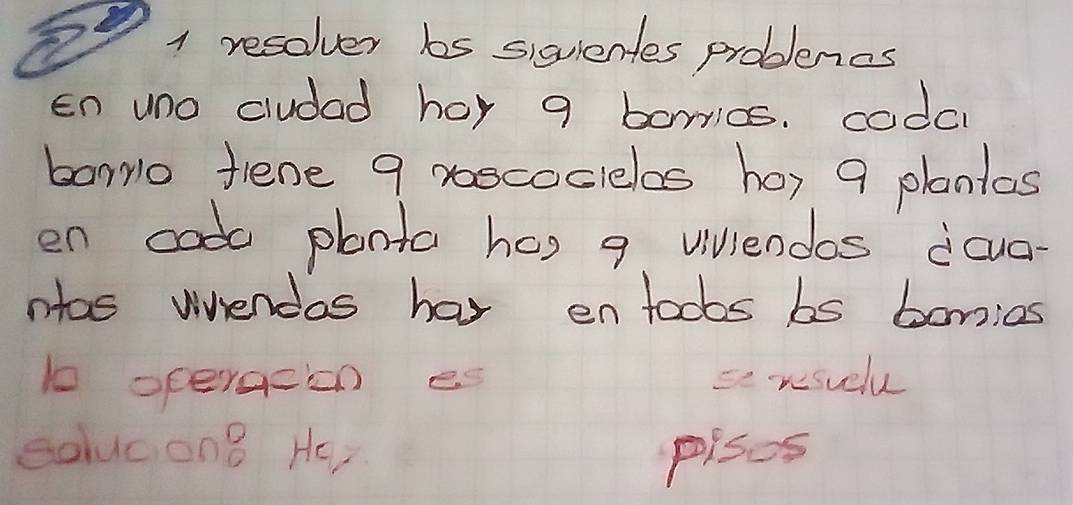 1 resolver los siguientes problemas
En una ciudad hay 9 barrios. cada
barrio tiene 9 rascacielos hay 9 plantas
en cada planta hay 9 viviendas ¿cua-
ntas viviendas hay en todos los barrios
la operación es se resuelu
solución: Hay pisos